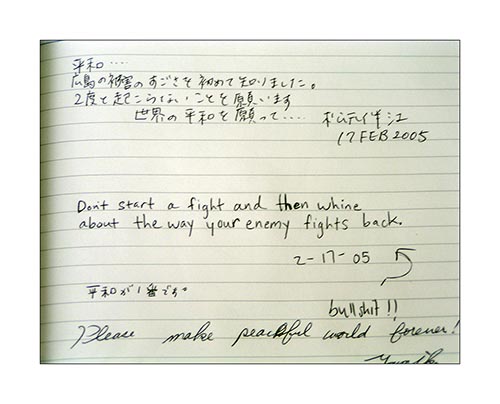 平和....
広島の被害のすごさを初めて知りました。
2度と起こらないことを願います
世界の平和を願って.....
17 FEB 2005
Don't start a fight and then whine
about the way your enemy fights back.
2-17-05
平和が1番です。
bullshit!!
Please make peackful world forever!